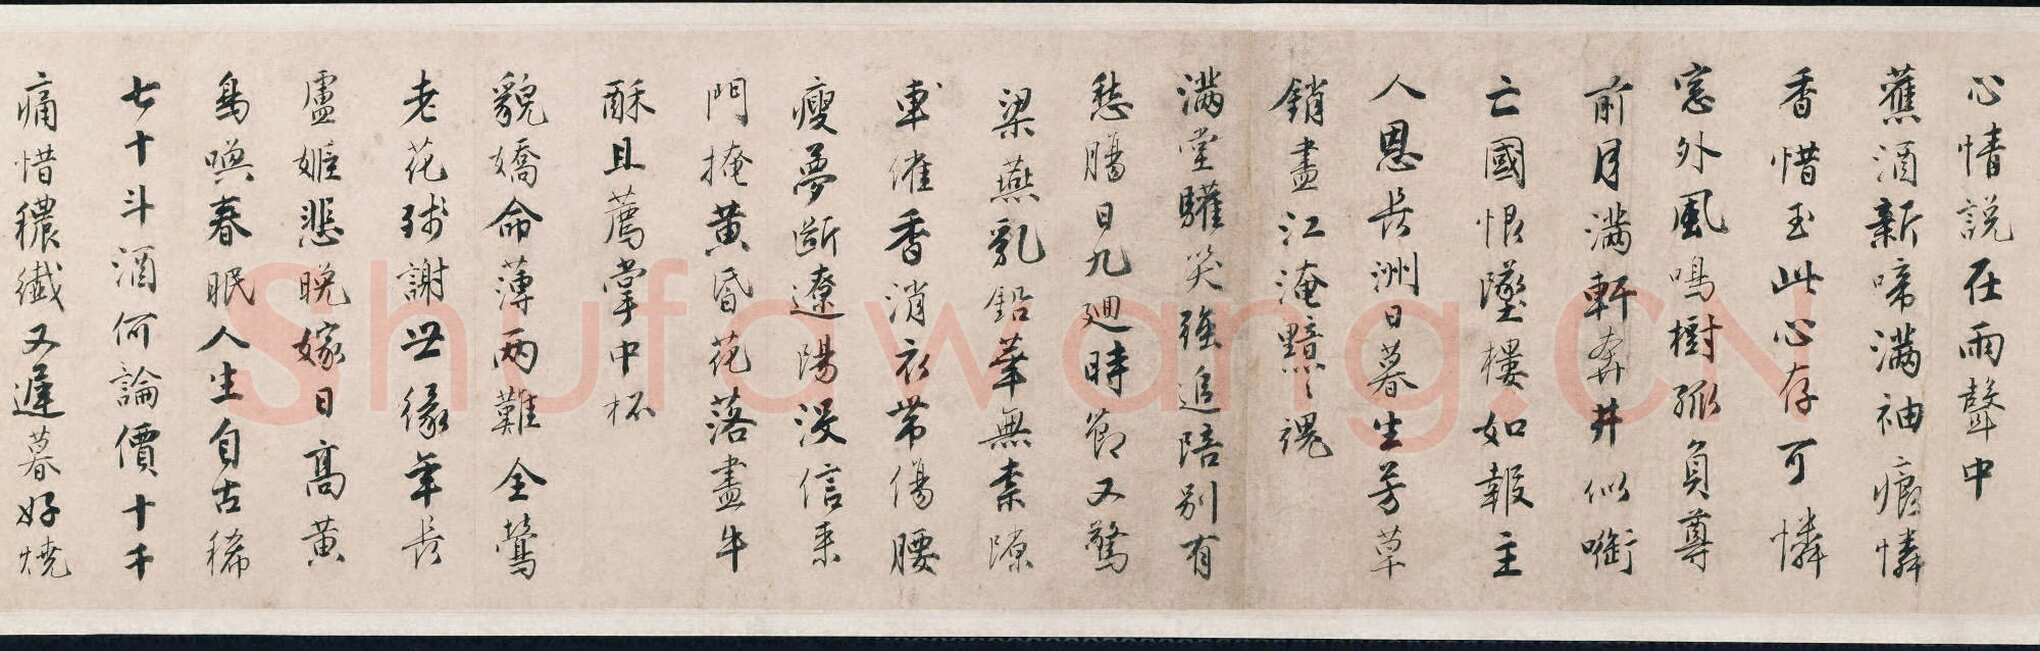 心情説在雨聲中
蕉酒新啼滿袖痕憐
香惜玉此心存可憐
窓外風鳴樹孤負尊
前月滿軒奔井似啣
亡國恨墜樓如報主
人恩長洲日暮生芳草
銷盡江淹黯〻魂
滿堂驩笑強追陪別有
愁腸日九廻時節又驚
梁燕乳鉛華無柰隙
車催香消衣帶傷腰
瘦夢斷遼陽没信來
門掩黄昏花落盡牛
酥且薦掌中杯
貌嬌命薄兩難全鶯
老花殘謝世緣年長
盧姬悲晚嫁日高黄
鳥喚春眠人生自古稀
七十斗酒何論價十千
痛惜穠纖又遲暮好燒
Shufawang.CN